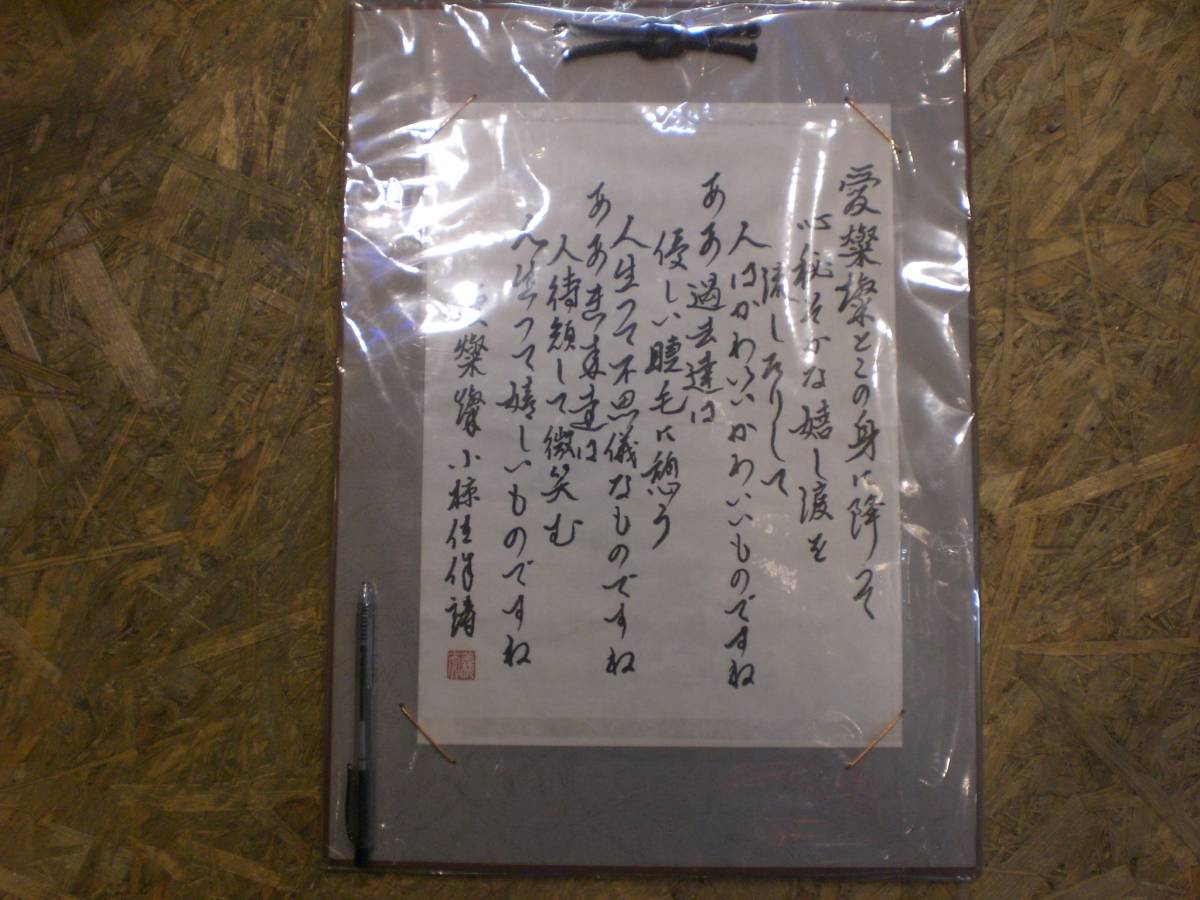 愛燦燦とこの身に降って
心秘そかな嬉し涙を
流したりして
人はかわいいかわいいものですね
ああ過去達は
優しい睫毛に憩う
人生って不思儀なものですね
ああ未来達は
人待顔して微笑む
人生って嬉しいものですね
愛燦燦 小椋佳作詩